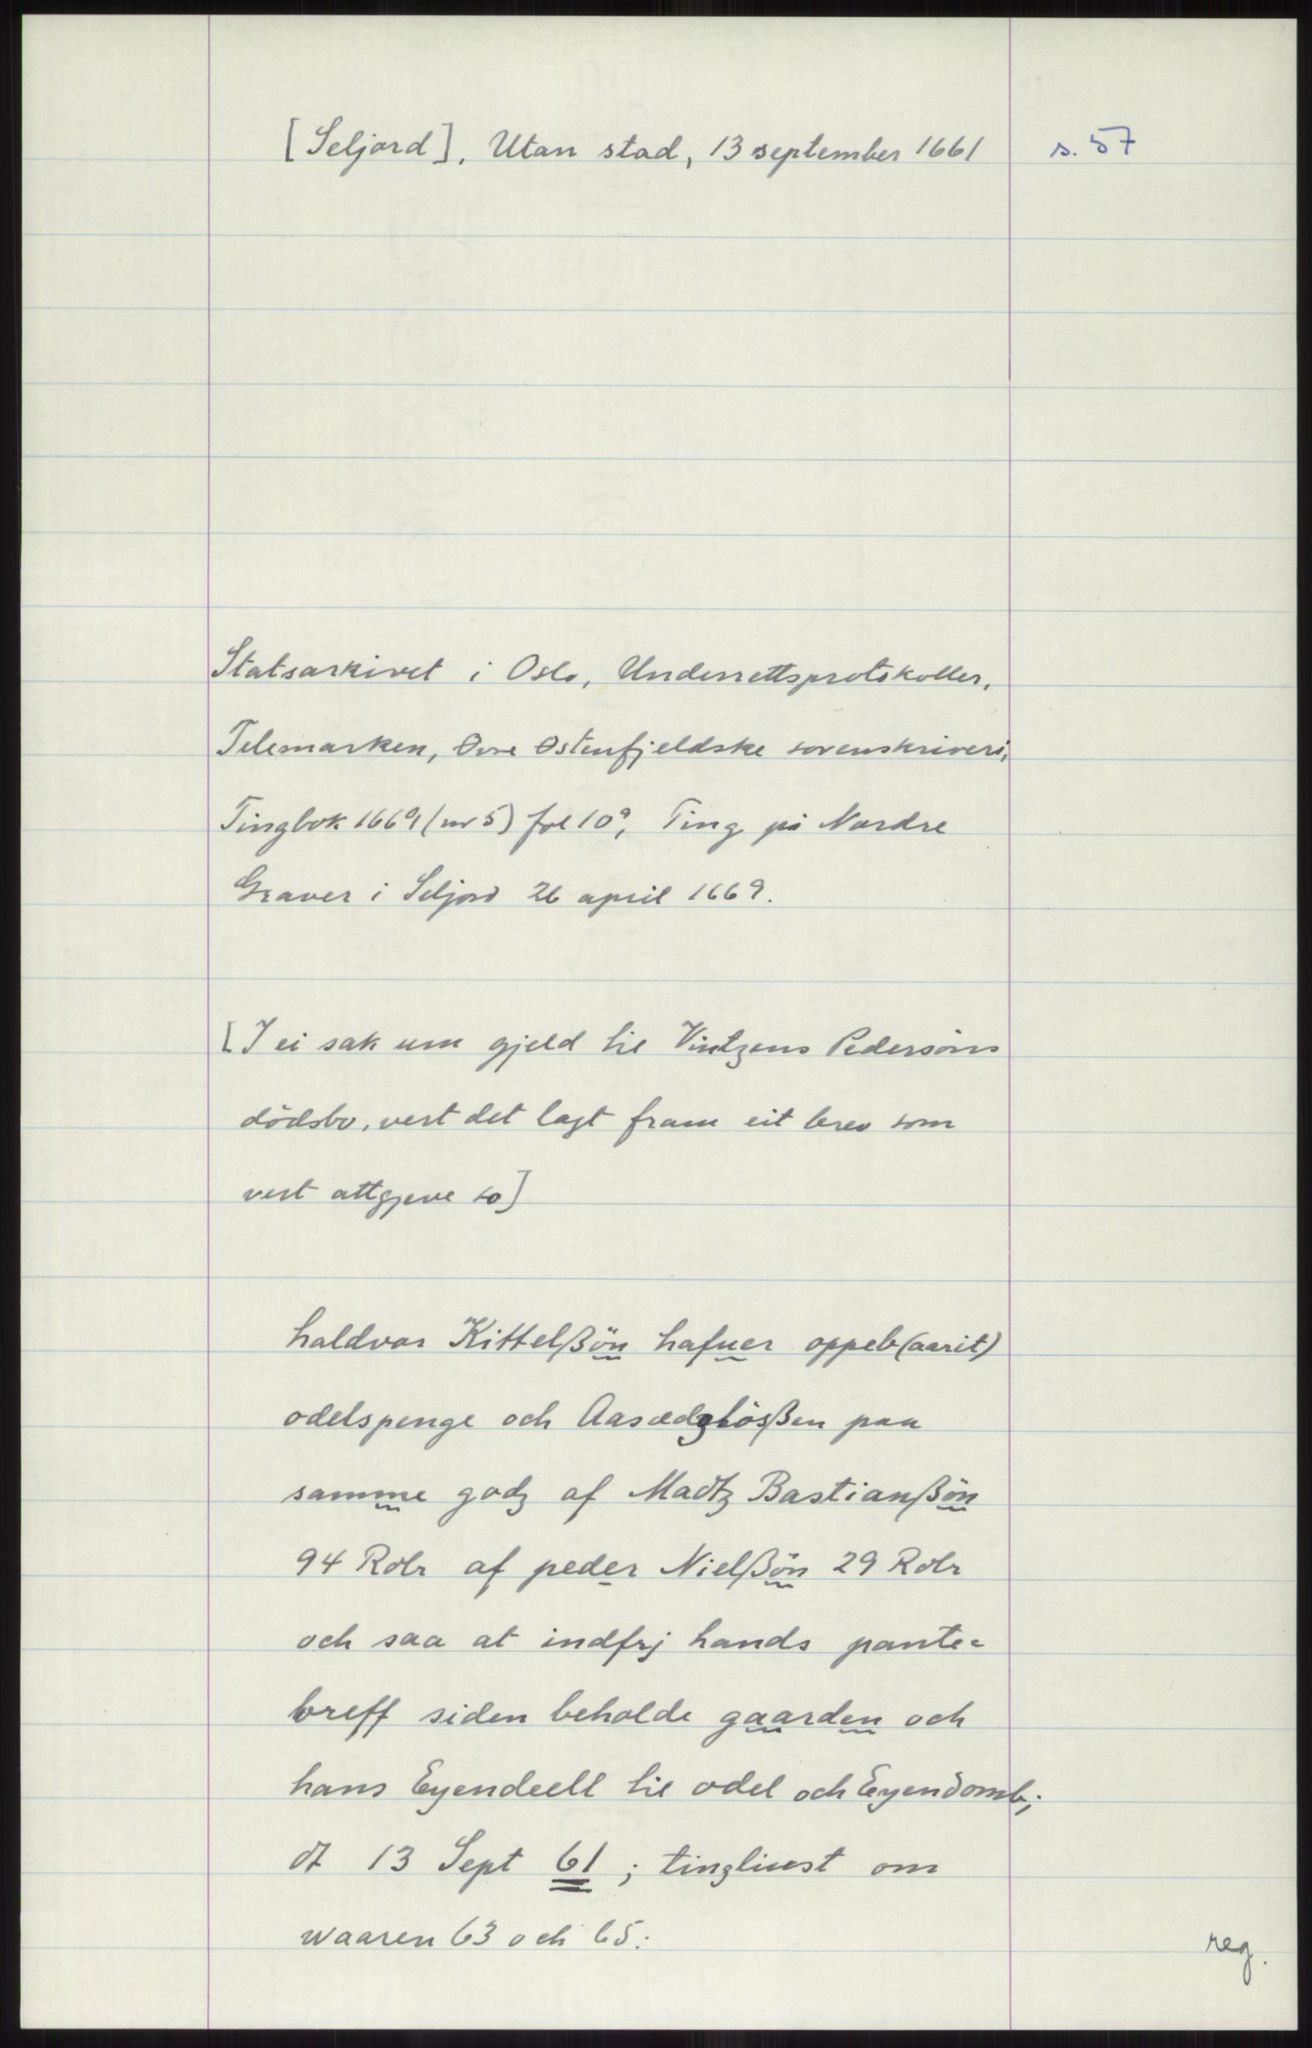 [Seljord], Utan stad, 13 september 1661 s. 57
Statsarkivet i Oslo, Underrettsprotokoller,
Telemarken, Øvre Østenfjeldske sorenskriveri,
Tingbok 1669 (nr 5) fol 10ª, Ting på Nordre
Graver i Seljord 26 april 1669.
[I ei sak um gjeld til Vintzens Pedersöns
dödsbo, vert det lagt fram eit brev som
vert attgjeve so]
haldvor Kittelßön hafuer oppeb(aarit)
odelspenge och Aasædzlösßen paa
samme godz af Madtz Bastianßön
94 Rdlr af peder Nielßön 29 Rdlr
och saa at indfrj hands pante=
breff siden beholde gaarden och
hans Eyendeell til odel och Eyendomb;
dt 13 Sept 61; tingliust om
waaren 63 och 65:
reg.